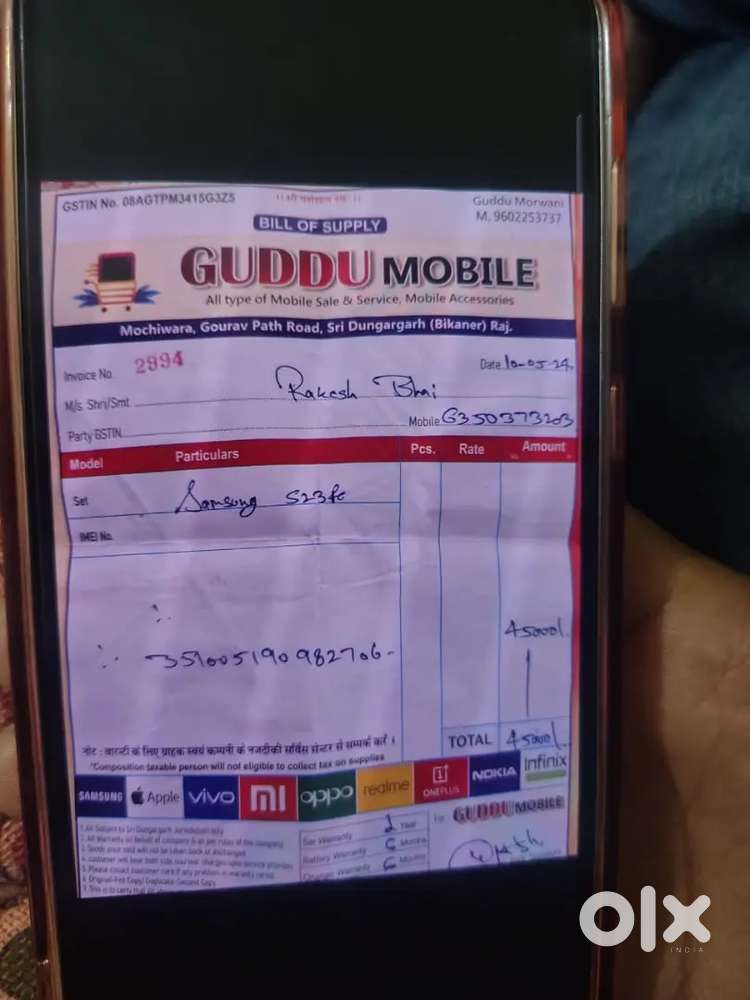 GSTIN No. 08AGTPM3415G3Z5
Guddu Morwani
BILL OF SUPPLY
M. 9602253737
GUDDU MOBILE
All type of Mobile Sale & Service, Mobile Accessories
Mochiwara, Gourav Path Road, Sri Dungargarh (Bikaner) Raj.
Invoice No. 2994
Date 10-05-24
M/s. Shri/Smt. Rakesh Bhai
Party GSTIN
Mobile 6350373203
Model Particulars Pcs. Rate Amount
Set Samsung S23fe
IMEI No.
45000/.
351005190982706-
नोट : वारन्टी के लिए ग्राहक स्वयं कम्पनी के नजदीकी सर्विस सेन्टर से सम्पर्क करें ।
TOTAL 45000/.
*Composition taxable person will not eligible to collect tax on supplies
SAMSUNG Apple vivo MI oppo realme ONEPLUS NOKIA Infinix
1. All Subject to Sri Dungargarh Jurisdiction only
2. All Warranty on behalf of company & as per rules of the company
3. Goods once sold will not be taken back or exchanged
Set Warranty 1 Year
Battery Warranty 6 Months
Charger Warranty 6 Months
For GUDDU MOBILE
olx
INDIA